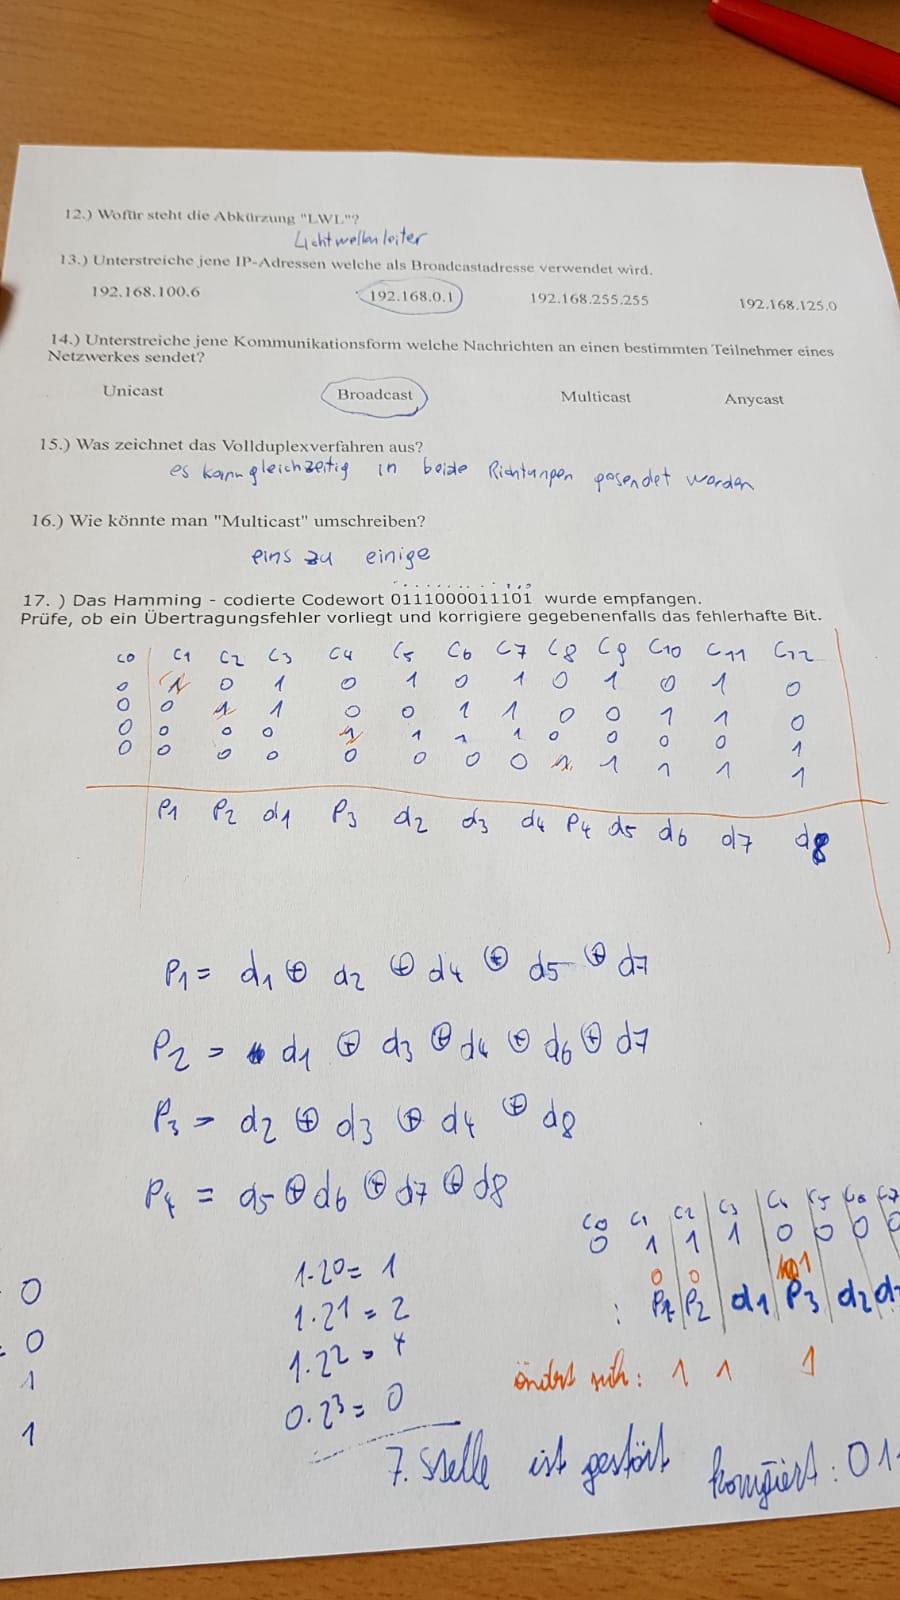 12.) Wofür steht die Abkürzung "LWL"?
Lichtwellenleiter
13.) Unterstreiche jene IP-Adressen welche als Broadcastadresse verwendet wird.
192.168.100.6 192.168.0.1 192.168.255.255 192.168.125.0
14.) Unterstreiche jene Kommunikationsform welche Nachrichten an einen bestimmten Teilnehmer eines
Netzwerkes sendet?
Unicast Broadcast Multicast Anycast
15.) Was zeichnet das Vollduplexverfahren aus?
es kann gleichzeitig in beide Richtungen gesendet werden
16.) Wie könnte man "Multicast" umschreiben?
eins zu einige
17. ) Das Hamming - codierte Codewort 0111000011101 wurde empfangen.
Prüfe, ob ein Übertragungsfehler vorliegt und korrigiere gegebenenfalls das fehlerhafte Bit.
C0 C1 C2 C3 C4 C5 C6 C7 C8 C9 C10 C11 C12
0 1 0 1 0 1 0 1 0 1 0 1 0
0 0 1 1 0 0 1 1 0 0 1 1 0
0 0 0 0 1 1 1 1 0 0 0 0 1
0 0 0 0 0 0 0 0 1 1 1 1 1
P1 P2 d1 P3 d2 d3 d4 P4 d5 d6 d7 d8
P1 = d1 ⊕ d2 ⊕ d4 ⊕ d5 ⊕ d7
P2 = d1 ⊕ d3 ⊕ d4 ⊕ d6 ⊕ d7
P3 = d2 ⊕ d3 ⊕ d4 ⊕ d8
P4 = d5 ⊕ d6 ⊕ d7 ⊕ d8
C0 C1 C2 C3 C4 C5 C6 C7
0 1 1 1 0 0 0 0
0 0 1
: P1 P2 d1 P3 d2 d
ändert sich: 1 1 1
= 0
= 0
1
1
1·20 = 1
1·21 = 2
1·22 = 4
0·23 = 0
7. Stelle ist gestört korrigiert: 01